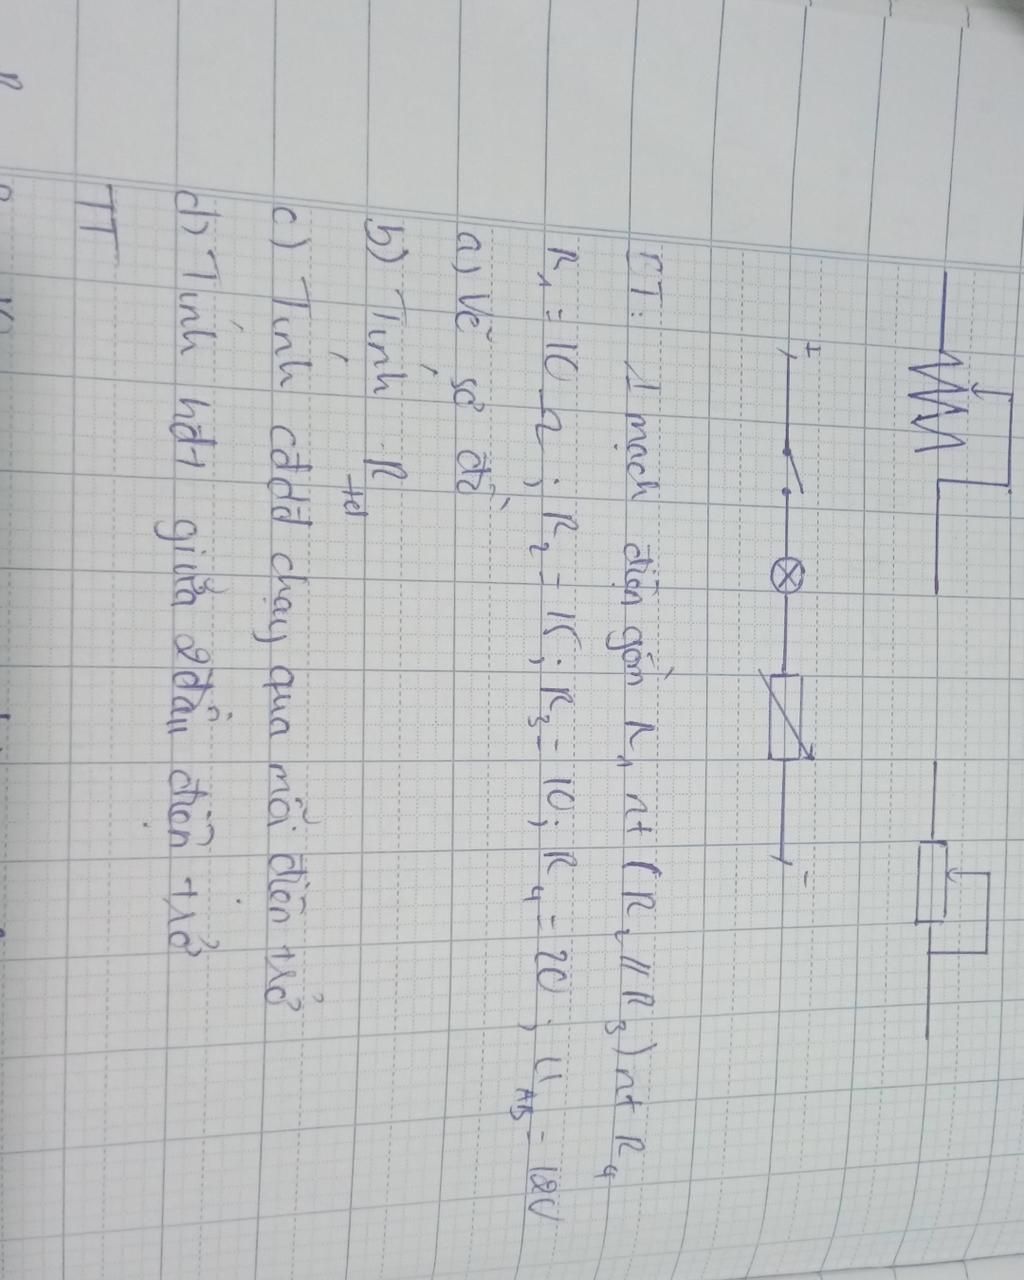 + -
BT: 1 mạch điện gồm R₁ nt (R₂ // R₃) nt R₄
R₁ = 10 Ω ; R₂ = 15 ; R₃ = 10 ; R₄ = 20 ; U_AB = 12V
a) Vẽ sơ đồ
b) Tính R_tđ
c) Tính cđdđ chạy qua mỗi điện trở
d) Tính hđt giữa 2 đầu điện trở
TT